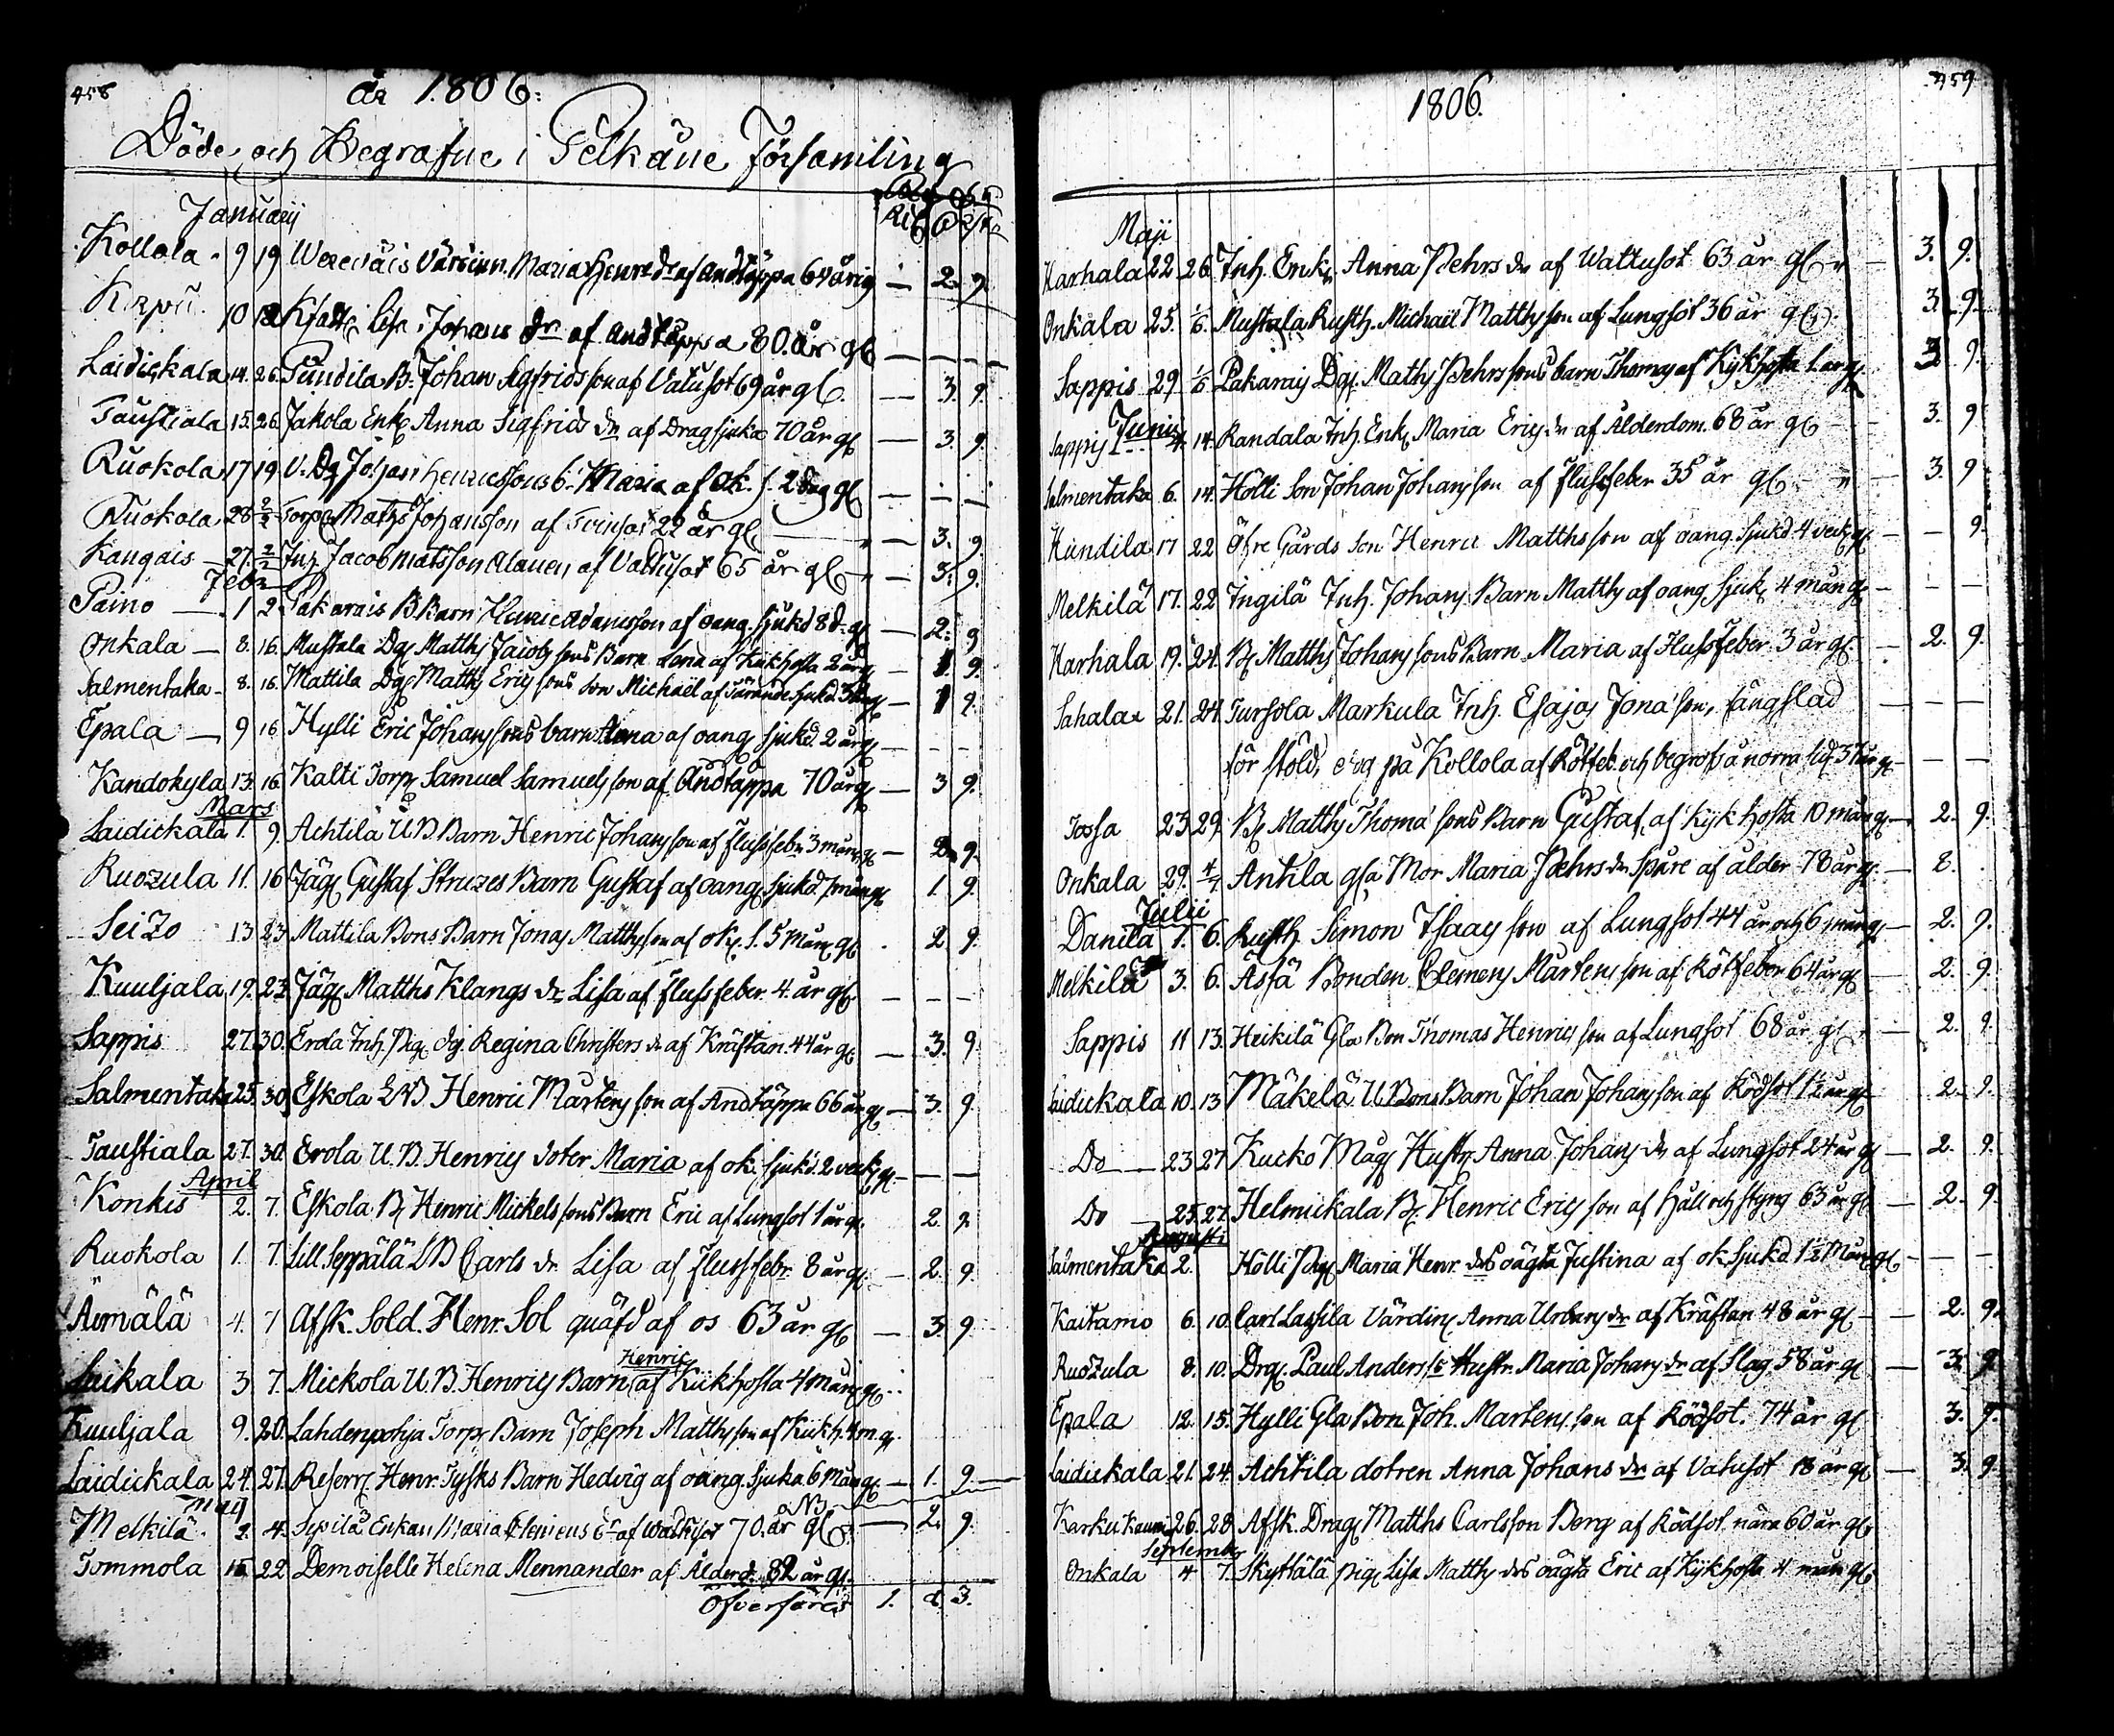 458
år 1806.
Döde och Begrafne i Pelkäne Församling
Januarii
Kollola 9 19 Värdinn. Maria Henrs dr af Andtäppa 64 årig — 2. 9.
10 Lisa Johans dr af andtäppa 80. år gl — — —
Laidickala 14. 26. Pundila B. Johan Sigfridsson af Vatusot 69 år gl. — 3. 9.
Taustiala 15. 26. Jakola Enk. Anna Sigfrids dr af Dragsjuka 70 år gl — 3. 9.
Ruokola 17 19 V. Dg Johan Henricssons b. Maria af ok. s. 2 dag gl — — —
Ruokola 28 2/2 Torp. Maths Johansson af Tvinsot 22 år gl — 3. 9.
Kangais — 27. 2/2 Inh. Jacob Matsson Alanen af Vattusot 65 år gl — 3. 9.
Febr
Paino — 1 2 Pakarais B Barn Henric Adamsson af oang. sjukd 8 d. gl — 2. 9
Onkala — 8. 16. Mustala Dg Matths Jacobs sons Barn Lena af Kikhosta 2 år g — 1. 9.
Salmentaka 8. 16. Mattila Dg Matths Erics sons son Michaël af Tärande sjukd. — 1 9.
Epala — 9 16 Hylli Eric Johans sons barn Anna af oang sjukd. 2 år g — — —
Kandokyla 13. 16. Kalti Torp. Samuel Samuels son af Andtäppa 70 år g — 3 9.
Mars
Laidickala 1. 9. Achtilä U B Barn Henric Johans son af flussfebr 3 mån. g — 2 9.
Ruozula 11. 16 Jäg. Gustaf Struzes Barn Gustaf af oang. sjukd. g 1. 9.
Seizo 13 23 Mattila Bons Barn Jonas Matths son af ok. s. 5 mån. gl 2 9.
Kuuljala 19. 23. Jäg. Matths Klangs dr Lisa af flussfeber 4. år gl — — —
Sappis 27. 30. Erola Inh. Pig. Regina Christers dr af Kräftan 44 år g — 3. 9.
Salmentaka 25. 30. Eskola Henric Mårtens son af Andtäppa 66 år g — 3. 9.
Taustiala 27. 30. Erola U. B. Henrics doter Maria af ok. sjukd 2 veck. g — — —
April
Konkis 2. 7. Eskola B. Henric Mickels sons Barn Eric af Lungsot 1 år g. 2. 9.
Ruokola 1. 7. Lill Seppälä Carls dr Lisa af flussfebr. 8 år g. — 2. 9
Äimälä 4. 7 Afsk. Sold. Henr. Sol quäfd af os 63 år gl — 3. 9
Laikala 3 7. Mickola U. B. Henrics Barn Henric af Kikhosta 4 mån. g.
Kuuljala 9. 20. Lahdenpohja Torp. Barn Joseph Matths son af Kikh. 4 m. g.
Laidickala 24. 27. Reserv. Henr. Tysks Barn Hedvig af oang. sjuka 6 mån g. — 1. 9. —
Maij
Melkilä 2. 4. Sepilä Enkan Maria Clemens dr af Wattusot 70. år gl. — 2. 9.
Tommola 15 22 Demoiselle Helena Mennander af Ålderd. 82 år gl.
Öfverföres 1. 2. 3.
459
1806.
Maji
Harhala 22 26. Inh. Enk. Anna Pehrs dr af Wattusot 63 år gl — 3. 9.
Onkala 25. 1/6. Mustala Rusth. Michaël Matths son af Lungsot 36 år gl. 3. 9.
Sappis 29 1/6 Pakarais Dg. Maths Pehrs sons barn Thomas af Kikhosta 1. år g. 3 9.
Junii
Sappis 4. 14. Randala Inh. Enk. Maria Erics dr af Ålderdom. 68 år gl — 3. 9
Salmentaka 6. 14. Holli Son Johan Johans son af flussfeber 35 år gl — 3. 9
Hundila 17 22 Öfre Gårds Son Henric Matths son af oang. sjukd 4 veck. g. — — 9.
Melkilä 17. 22 Ingilä Inh. Johans Barn Matths af oang sjuk. 4 mån g — — —
Harhala 19. 24. B. Matths Johans sons Barn Maria af flussfeber. 3 år g. — 2. 9.
Sahalax 21. 24. Tursola Markula Inh. Esajas Jonæ son, fängslad — — —
för stöld, dog på Kollola af Rötfeb. och begrofs å norra sid. 37 år g — — —
Tossa 23 29. B. Matths Thomæ sons Barn Gustaf, af Kikhosta 10 mån g — 2. 9.
Onkala 29. 4/7. Antila gla Mor Maria Pehrs dr Spåre af ålder 78 år g. — 2.
Julii
Danila 1. 6. Rusth. Simon Isaacs son af Lungsot 44 år och 6 mån g. — 2. 9.
Melkilä 3. 6. Äijä Bonden Clemens Mårtens son af Rötfeber 64 år g — 2. 9.
Sappis 11 13. Heikilä Gla Bon Thomas Henrics son af Lungsot 68 år gl. — 2. 9.
Laidickala 10. 13 Mäkelä U. Bons Barn Johan Johans son af Rödsot 1½ år g — 2. 9.
Do — 23 27 Kucko Måg. Hustr. Anna Johans dr af Lungsot 24 år g — 2. 9.
Do — 25. 27. Helmickala B. Henric Erics son af Håll och styng 63 år g — 2. 9.
Augusti
Salmentaka 2. Holli Pig. Maria Henr. drs oägta Justina af ok sjukd 1½ Mån. g — — —
Kaitamo 6. 10. Carl Lassila Värdin. Anna Urbans dr af Kräftan 48 år g — 2. 9.
Ruozula 8. 10. Drg. Paul Anders. Hustr. Maria Johans dr af Slag. 58 år g — 3. 9.
Epala 12. 15. Hylli Gla Bon Joh. Martens. son af Rödsot. 74 år g 3. 9.
Laidickala 21. 24. Achtila dotren Anna Johans dr af Vatusot 18 år g — 3. 9.
26. 28. Afsk. Drag. Matths Carlsson Berg af Rödsot. nära 60 år gl.
September
Onkala 4 7. Skyttälä pig. Lisa Matths drs oägta Eric af Kikhosta 4 mån gl.